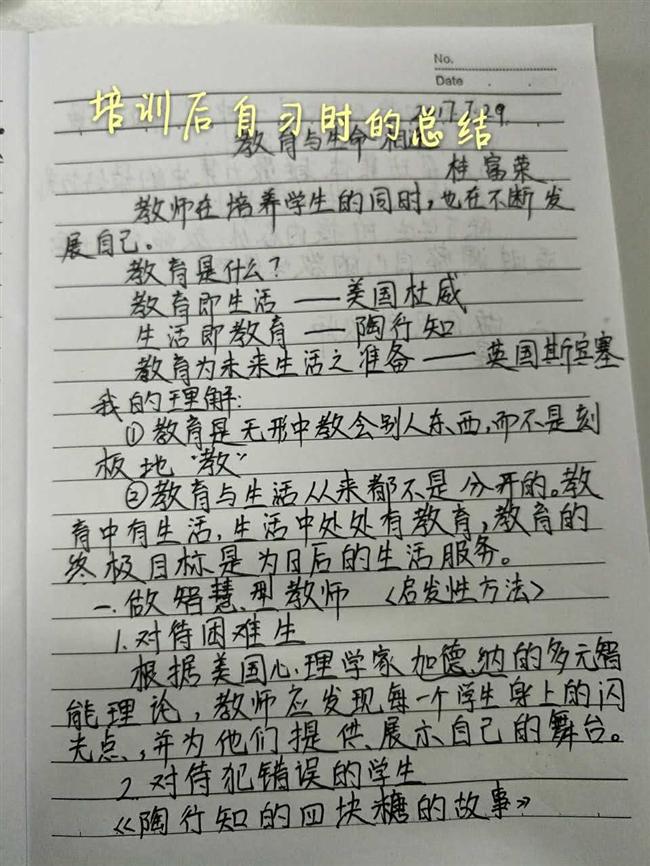 No.
Date
培训后自习时的总结
2017.7.29.
教育与生命
桂富荣
教师在培养学生的同时,也在不断发
展自己。
教育是什么?
教育即生活 ——美国杜威
生活即教育 ——陶行知
教育为未来生活之准备——英国斯宾塞
我的理解:
①教育是无形中教会别人东西,而不是刻
板地“教”
②教育与生活从来都不是分开的。教
育中有生活,生活中处处有教育,教育的
终极目标是为日后的生活服务。
一.做智慧型教师 〈启发性方法〉
1.对待困难生
根据美国心理学家加德纳的多元智
能理论,教师应发现每一个学生身上的闪
光点,并为他们提供、展示自己的舞台。
2.对待犯错误的学生
《陶行知的四块糖的故事》